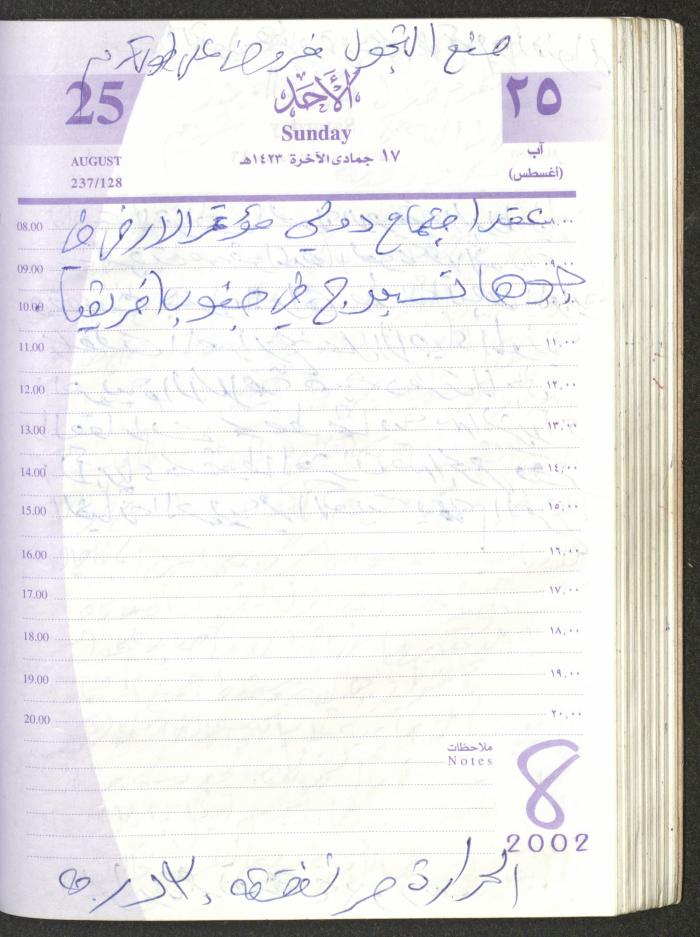 منع التجول مفروض على طولكرم
25
الأحد
٢٥
Sunday
AUGUST
237/128
١٧ جمادى الآخرة ١٤٢٣هـ
آب
(أغسطس)
08.00 عقد اجتماع دولي مؤتمر الارض في
09.00
10.00 في جنوب افريقيا
11.00 ١١,٠٠
12.00 ١٢,٠٠
13.00 ١٣,٠٠
14.00 ١٤,٠٠
15.00 ١٥,٠٠
16.00 ١٦,٠٠
17.00 ١٧,٠٠
18.00 ١٨,٠٠
19.00 ١٩,٠٠
20.00 ٢٠,٠٠
ملاحظات
Notes
8
2002
الحرارة مرتفعة ٣٠ درجة